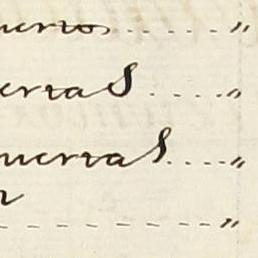 uerro, ..... „
erras ..... „
uerras .... „
„